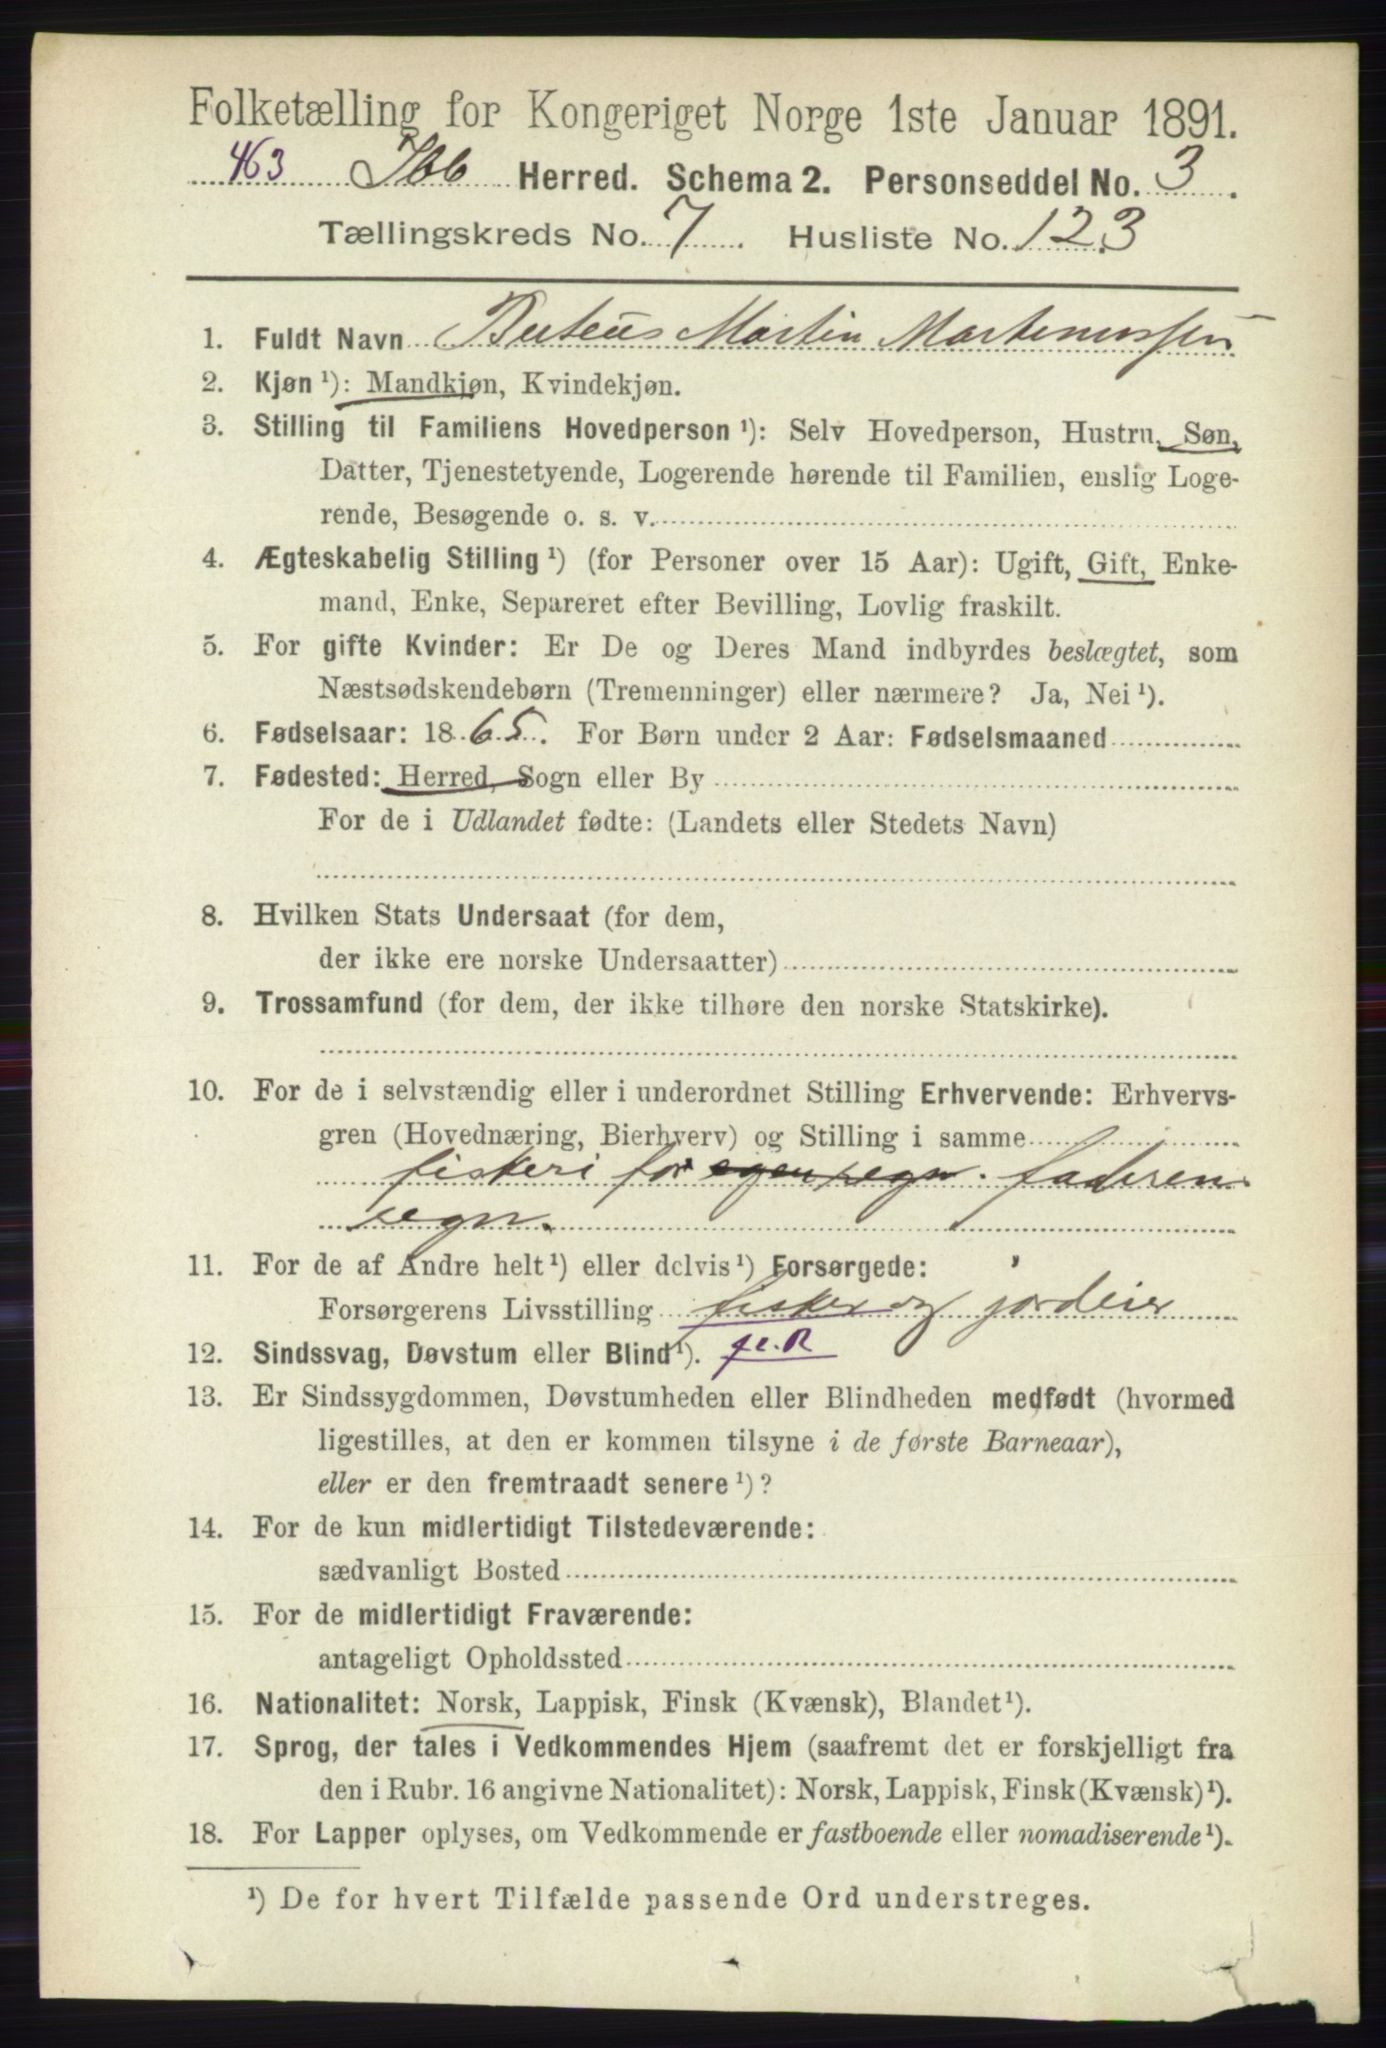 Folketælling for Kongeriget Norge 1ste Januar 1891.
463 Ibb Herred. Schema 2. Personseddel No. 3.
Tællingskreds No. 7. Husliste No. 123
1. Fuldt Navn Beteus Martin Martinussen
2. Kjøn ¹): Mandkjøn, Kvindekjøn.
3. Stilling til Familiens Hovedperson ¹): Selv Hovedperson, Hustru, Søn,
Datter, Tjenestetyende, Logerende hørende til Familien, enslig Loge-
rende, Besøgende o. s. v.
4. Ægteskabelig Stilling ¹) (for Personer over 15 Aar): Ugift, Gift, Enke-
mand, Enke, Separeret efter Bevilling, Lovlig fraskilt.
5. For gifte Kvinder: Er De og Deres Mand indbyrdes beslægtet, som
Næstsødskendebørn (Tremenninger) eller nærmere? Ja, Nei ¹).
6. Fødselsaar: 1865. For Børn under 2 Aar: Fødselsmaaned
7. Fødested: Herred, Sogn eller By
For de i Udlandet fødte: (Landets eller Stedets Navn)
8. Hvilken Stats Undersaat (for dem,
der ikke ere norske Undersaatter)
9. Trossamfund (for dem, der ikke tilhøre den norske Statskirke).
10. For de i selvstændig eller i underordnet Stilling Erhvervende: Erhvervs-
gren (Hovednæring, Bierhverv) og Stilling i samme
fiskeri for egen regn. faderens
regn.
11. For de af Andre helt ¹) eller delvis ¹) Forsørgede:
Forsørgerens Livsstilling fisker og jordeier
12. Sindssvag, Døvstum eller Blind ¹).
13. Er Sindssygdommen, Døvstumheden eller Blindheden medfødt (hvormed
ligestilles, at den er kommen tilsyne i de første Barneaar),
eller er den fremtraadt senere ¹)?
14. For de kun midlertidigt Tilstedeværende:
sædvanligt Bosted
15. For de midlertidigt Fraværende:
antageligt Opholdssted
16. Nationalitet: Norsk, Lappisk, Finsk (Kvænsk), Blandet ¹).
17. Sprog, der tales i Vedkommendes Hjem (saafremt det er forskjelligt fra
den i Rubr. 16 angivne Nationalitet): Norsk, Lappisk, Finsk (Kvænsk) ¹).
18. For Lapper oplyses, om Vedkommende er fastboende eller nomadiserende ¹).
¹) De for hvert Tilfælde passende Ord understreges.